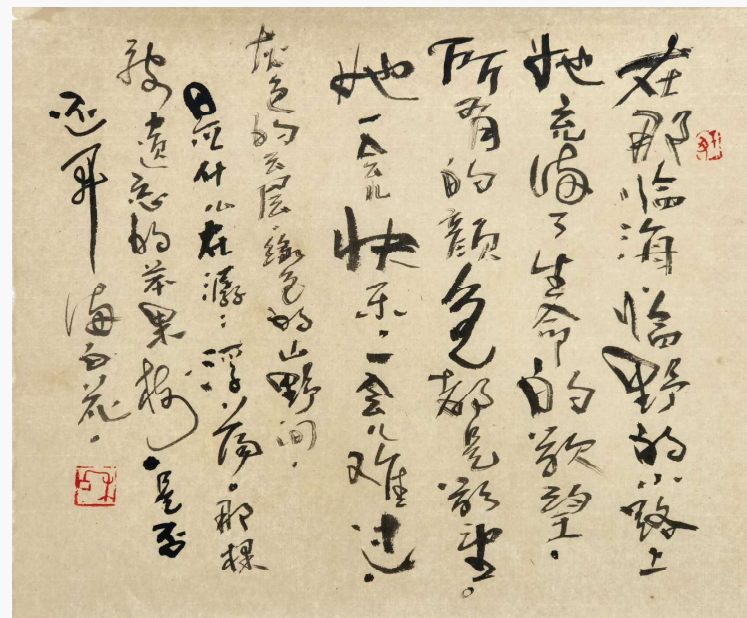 在那临海临野的小路上
她充满了生命的欲望。
所有的颜色都是欲望。
她一会儿快乐，一会儿难过。
灰色的云层绿色的山野间，
什么在浮荡。那棵
被遗忘的苹果树。是否
还开满白花。